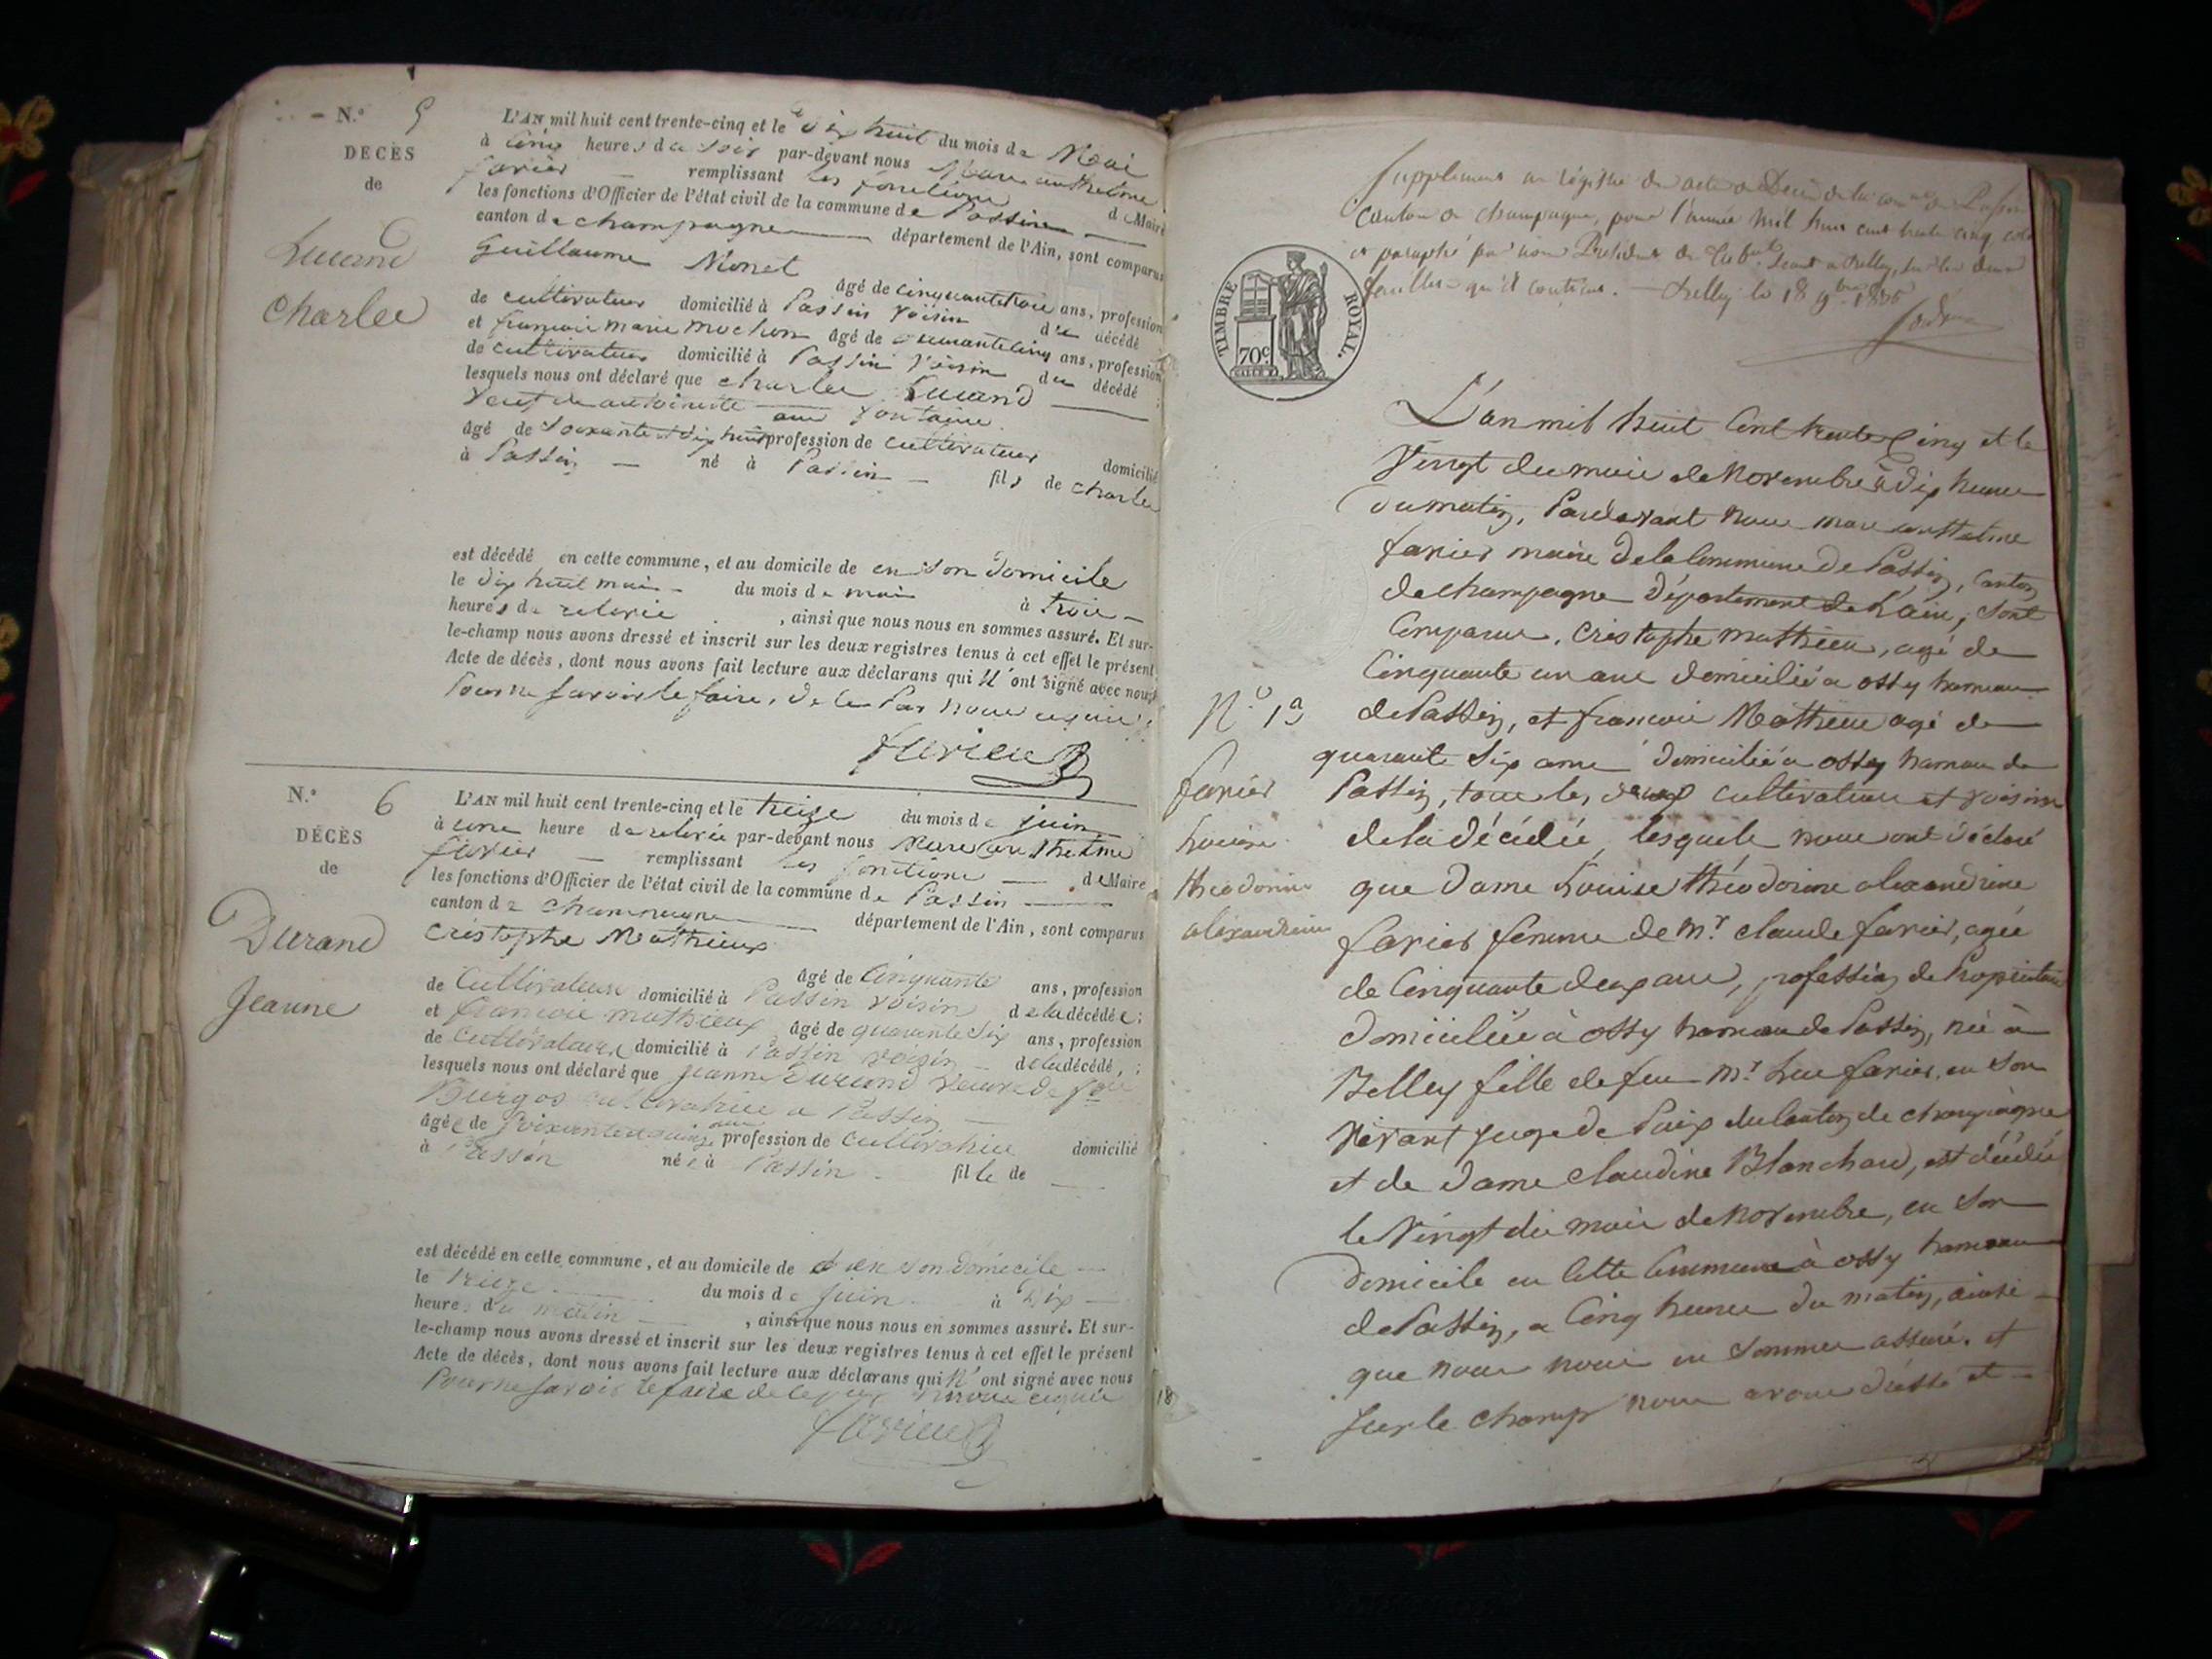 N.º 5
DÉCÈS
de
Lucand
Charles
L'AN mil huit cent trente-cinq et le dix huit du mois de Mai
à cinq heures du soir par-devant nous Marc anthelme
favier — remplissant les fonctions de Maire
les fonctions d'Officier de l'état civil de la commune de Passin
canton de champagne département de l'Ain, sont comparus
Guillaume Monet
âgé de cinquante trois ans, profession
de cultivateur domicilié à Passin voisin du décédé
et francois marie mochon âgé de ans, profession
de cultivateur domicilié à Passin voisin du décédé ;
lesquels nous ont déclaré que charles Lucand
veuf de antoinette fontaine
âgé de soixante et dix huit ans profession de cultivateur domicilié
à Passin — né à Passin — fils de charles
est décédé en cette commune, et au domicile de en son domicile
le dix huit mai du mois de mai à trois
heures de relevée , ainsi que nous nous en sommes assuré. Et sur-
le-champ nous avons dressé et inscrit sur les deux registres tenus à cet effet le présent
Acte de décès, dont nous avons fait lecture aux déclarans qui n'ont signé avec nous
Pour ne savoir le faire, de ce Par nous requis.
favier
N.º 6
DÉCÈS
de
Durand
Jeanne
L'AN mil huit cent trente-cinq et le treize du mois de juin
à une heure de relevée par-devant nous Marc anthelme
favier — remplissant les fonctions — de Maire
les fonctions d'Officier de l'état civil de la commune de Passin
canton de champagne département de l'Ain, sont comparus
Cristophe Mathieux
âgé de Cinquante ans, profession
de Cultivateur domicilié à Passin voisin de la décédée ;
et francois mathieux âgé de quarante six ans, profession
de Cultivateur domicilié à Passin voisin de la décédé, ;
lesquels nous ont déclaré que jeanne Durand veuve de
Burgos cultivatrice a Passin
âgée de profession de cultivatrice domicilié
à Passin née à Passin fille de
est décédé en cette commune, et au domicile de en son domicile
le treize du mois de juin à Dix
heures du matin , ainsi que nous nous en sommes assuré. Et sur-
le-champ nous avons dressé et inscrit sur les deux registres tenus à cet effet le présent
Acte de décès, dont nous avons fait lecture aux déclarans qui n'ont signé avec nous
Pour ne savoir le faire de ce par nous requis
favier
Supplement au régistre des actes de Décès de la commune de Passin
Canton de champagne, pour l'année mil huit cent trente cinq, coté
et paraphé par nous Président du Trib.al séant à Belley, sur les deux
feuilles qu'il contient. — Belley le 18 9bre 1835
TIMBRE ROYAL.
70c.
L'an mil huit Cent trente Cinq et le
Vingt du mois de Novembre à dix heures
du matin, Pardevant nous marc anthelme
favier maire de la Commune de Passin, Canton
de champagne Département de L'ain, sont
Comparus, Cristophe mathieu, agé de
Cinquante un ans domicilié a ossy hameau
de Passin, et francois Mathieu agé de
quarante six ans domicilié a ossy hameau de
Passin, tous les deux cultivateurs et voisins
de la décédée, lesquels nous ont déclaré
que Dame Louise théodorine alexandrine
favier femme de Mr. claude favier, agée
de Cinquante deux ans, profession de Propriétaire
domiciliée à ossy hameau de Passin, née à
Belley fille de feu Mr. Luc favier, en son
vivant juge de Paix du Canton de champagne
et de Dame claudine Blanchard, est décédée
le Vingt du mois de Novembre, en son
domicile en Cette Commune à ossy hameau
de Passin, a Cinq heures du matin, ainsi
que nous nous en sommes assuré. et
sur le champ nous avons dressé et
favier
Louise
théodorine
alexandrine
18